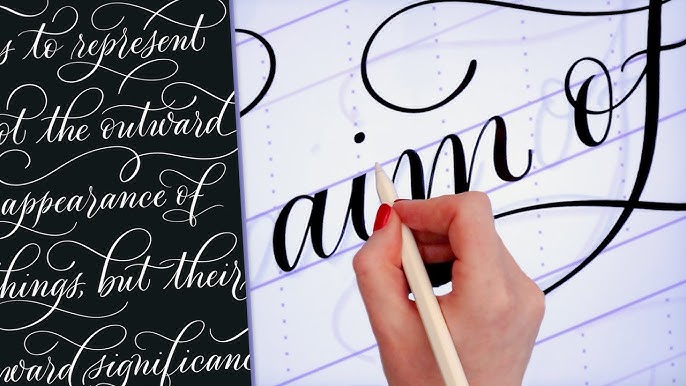 s to represent
ot the outward
appearance of
things, but their
ward significanc
aim of